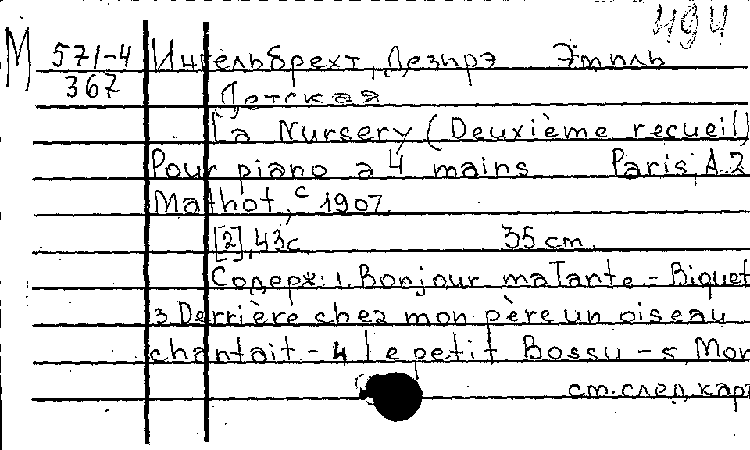 М 571-4 Ингельбрехт, Дезирэ Эмиль 494
367
Детская
La Nursery (Deuxième recueil)
Pour piano a 4 mains Paris, A.Z
Mathot, c 1907
[2], 43с. 35 cm.
Содерж: 1. Bonjour ma Tante - Biquet
3. Derrière chez mon père un oiseau
chantait - 4 le petit Bossu - 5 Mon
см. след. карт